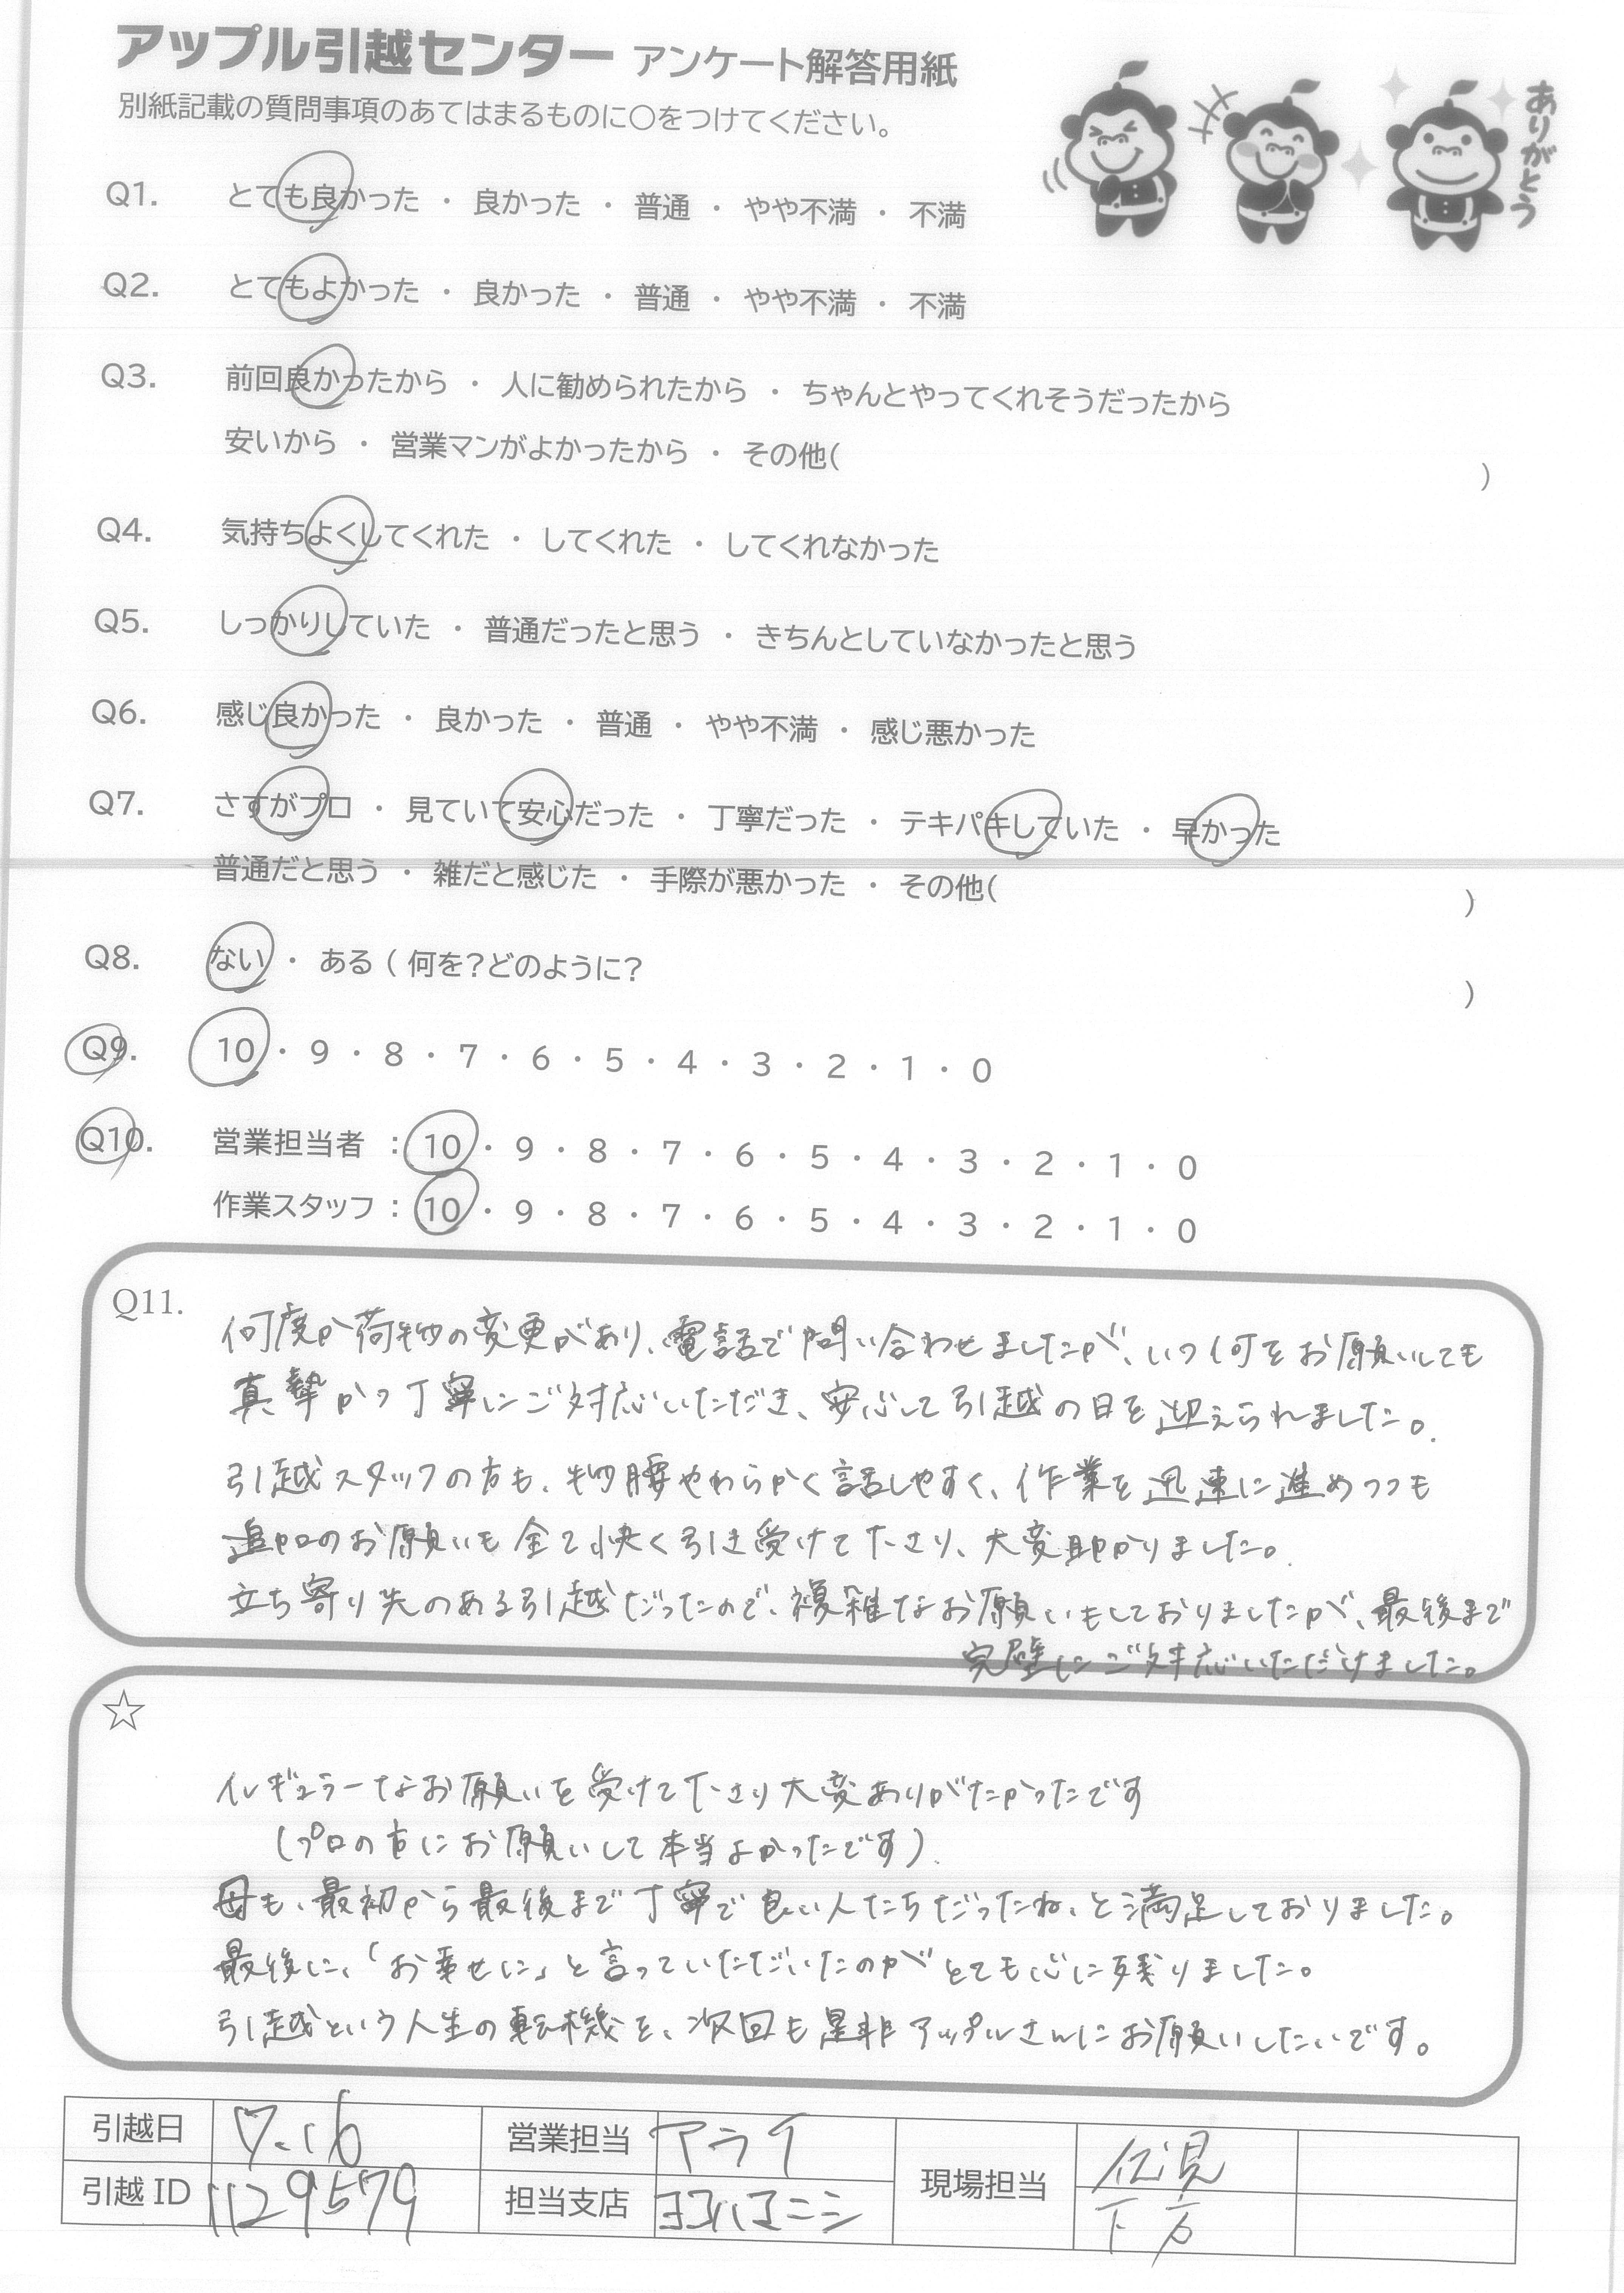 アップル引越センター アンケート解答用紙
別紙記載の質問事項のあてはまるものに○をつけてください。
ありがとう
Q1. とても良かった ・ 良かった ・ 普通 ・ やや不満 ・ 不満
Q2. とてもよかった ・ 良かった ・ 普通 ・ やや不満 ・ 不満
Q3. 前回良かったから ・ 人に勧められたから ・ ちゃんとやってくれそうだったから
安いから ・ 営業マンがよかったから ・ その他( )
Q4. 気持ちよくしてくれた ・ してくれた ・ してくれなかった
Q5. しっかりしていた ・ 普通だったと思う ・ きちんとしていなかったと思う
Q6. 感じ良かった ・ 良かった ・ 普通 ・ やや不満 ・ 感じ悪かった
Q7. さすがプロ ・ 見ていて安心だった ・ 丁寧だった ・ テキパキしていた ・ 早かった
普通だと思う ・ 雑だと感じた ・ 手際が悪かった ・ その他( )
Q8. ない ・ ある ( 何を?どのように? )
Q9. 10 ・ 9 ・ 8 ・ 7 ・ 6 ・ 5 ・ 4 ・ 3 ・ 2 ・ 1 ・ 0
Q10. 営業担当者 : 10 ・ 9 ・ 8 ・ 7 ・ 6 ・ 5 ・ 4 ・ 3 ・ 2 ・ 1 ・ 0
作業スタッフ : 10 ・ 9 ・ 8 ・ 7 ・ 6 ・ 5 ・ 4 ・ 3 ・ 2 ・ 1 ・ 0
Q11. 何度か荷物の変更があり、電話で問い合わせましたが、いつ何をお願いしても
真摯かつ丁寧にご対応いただき、安心して引越の日を迎えられました。
引越スタッフの方も、物腰やわらかく話しやすく、作業を迅速に進めつつも
追加のお願いも全て快く引き受けて下さり、大変助かりました。
立ち寄り先のある引越だったので、複雑なお願いもしておりましたが、最後まで
完璧にご対応いただけました。
☆
イレギュラーなお願いを受けて下さり大変ありがたかったです
(プロの方にお願いして本当よかったです)
母も、最初から最後まで丁寧で良い人たちだったね、と満足しておりました。
最後に、「お幸せに」と言っていただいたのがとても心に残りました。
引越という人生の転機を、次回も是非アップルさんにお願いしたいです。
引越日 7.16 営業担当 アライ 現場担当
引越 ID 1129579 担当支店 ヨコハマニシ 下方